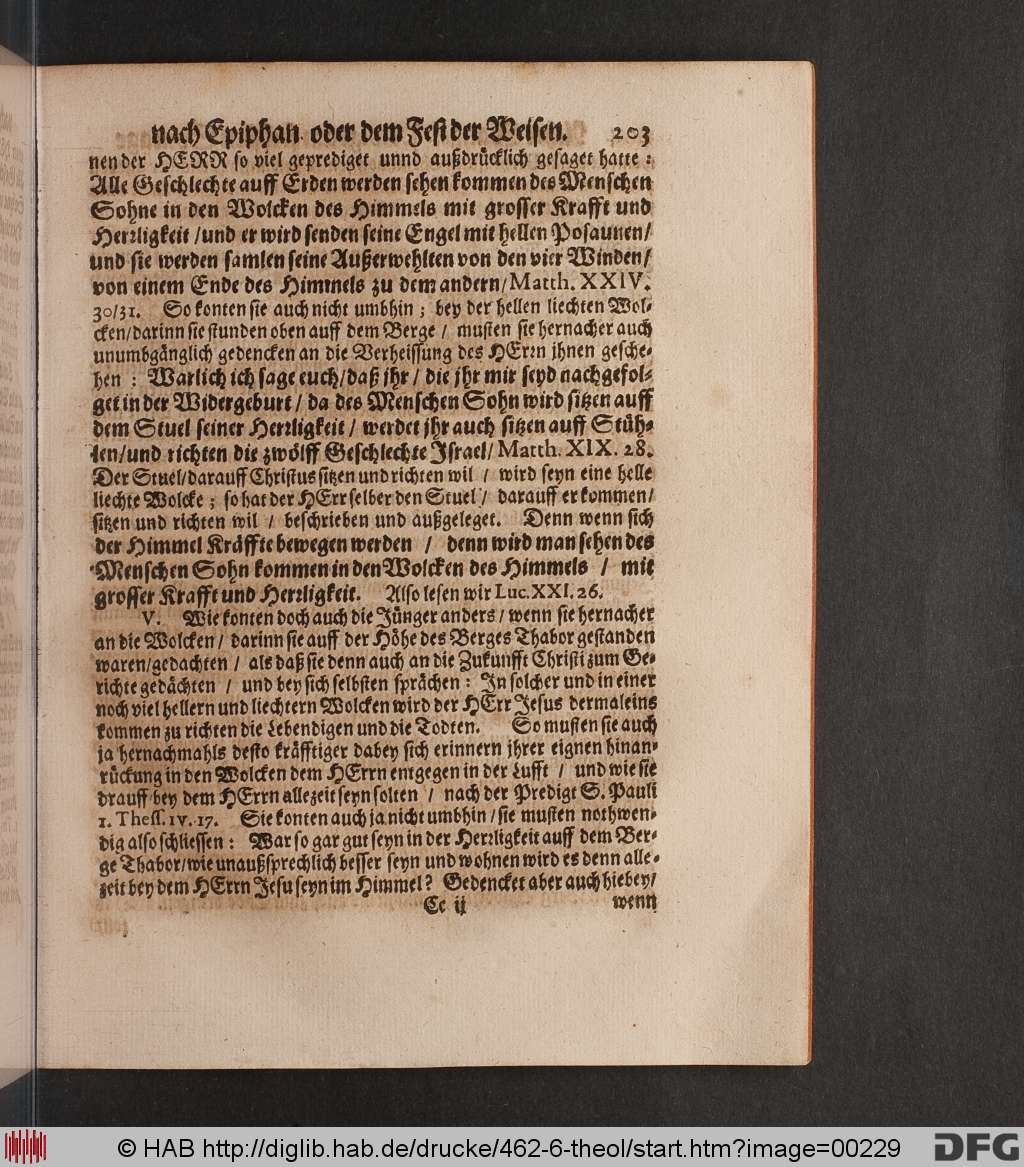 nach Epiphan. oder dem Fest der Weisen. 203
nen der HERR so viel geprediget unnd außdrücklich gesaget hatte:
Alle Geschlechte auff Erden werden sehen kommen des Menschen
Sohne in den Wolcken des Himmels mit grosser Krafft und
Herrligkeit / und er wird senden seine Engel mit hellen Posaunen /
und sie werden samlen seine Außerwehlten von den vier Winden /
von einem Ende des Himmels zu dem andern / Matth. XXIV.
30/31. So konten sie auch nicht umbhin; bey der hellen liechten Wol-
cken / darinn sie stunden oben auff dem Berge / musten sie hernacher auch
unumbgänglich gedencken an die Verheissung des HErrn jhnen gesche-
hen: Warlich ich sage euch / daß jhr / die jhr mir seyd nachgefol-
get in der Widergeburt / da des Menschen Sohn wird sitzen auff
dem Stuel seiner Herrligkeit / werdet jhr auch sitzen auff Stüh-
len / und richten die zwölff Geschlechte Israel / Matth. XIX. 28.
Der Stuel / darauff Christus sitzen und richten wil / wird seyn eine helle
liechte Wolcke; so hat der HErr selber den Stuel / darauff er kommen /
sitzen und richten wil / beschrieben und außgeleget. Denn wenn sich
der Himmel Kräffte bewegen werden / denn wird man sehen des
Menschen Sohn kommen in den Wolcken des Himmels / mit
grosser Krafft und Herrligkeit. Also lesen wir Luc. XXI. 26.
V. Wie konten doch auch die Jünger anders / wenn sie hernacher
an die Wolcken / darinn sie auff der Höhe des Berges Thabor gestanden
waren / gedachten / als daß sie denn auch an die Zukunfft Christi zum Ge-
richte gedächten / und bey sich selbsten sprächen: In solcher und in einer
noch viel hellern und liechtern Wolcken wird der HErr Jesus dermaleins
kommen zu richten die Lebendigen und die Todten. So musten sie auch
ja hernachmahls desto kräfftiger dabey sich erinnern jhrer eignen hinan-
rückung in den Wolcken dem HErrn entgegen in der Lufft / und wie sie
drauff bey dem HErrn allezeit seyn solten / nach der Predigt S. Pauli
1. Thess. IV. 17. Sie konten auch ja nicht umbhin / sie musten nothwen-
dig also schliessen: War so gar gut seyn in der Herrligkeit auff dem Ber-
ge Thabor / wie unaußsprechlich besser seyn und wohnen wird es denn alle-
zeit bey dem HErrn Jesu seyn im Himmel? Gedencket aber auch hiebey /
Cc ij wenn
© HAB http://diglib.hab.de/drucke/462-6-theol/start.htm?image=00229
DFG